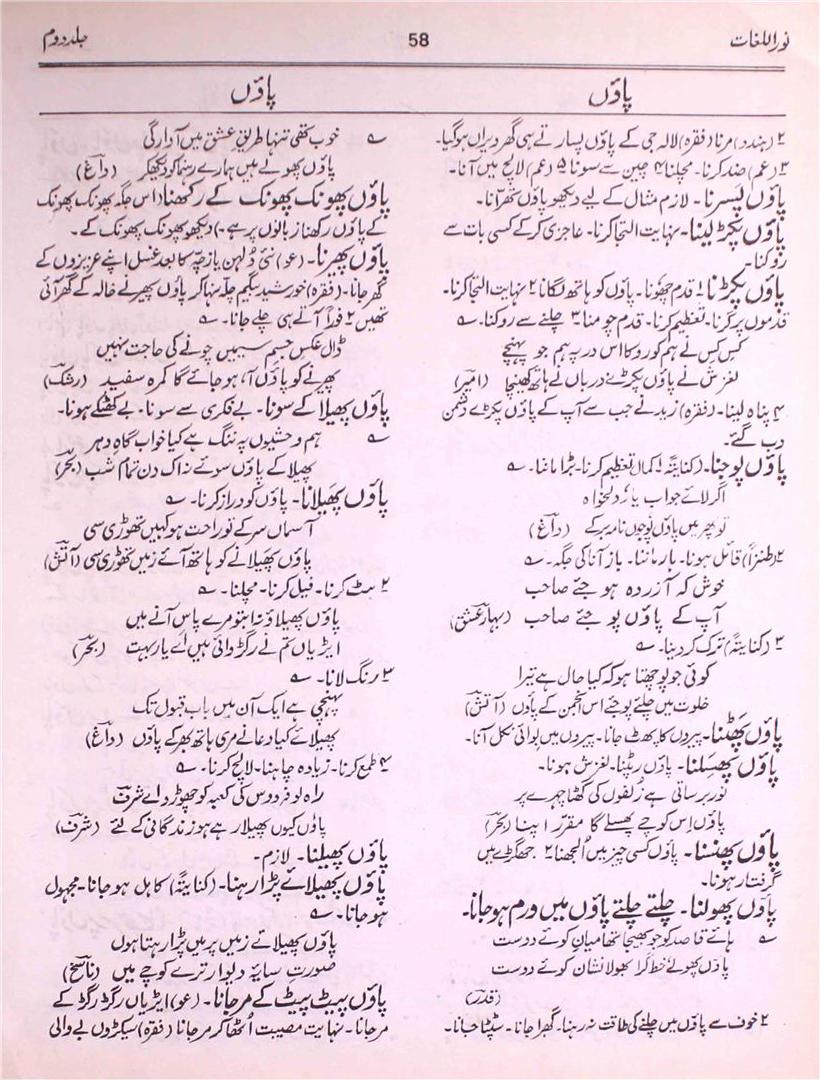 نور اللغات
58
جلد دوم
پاؤں
پاؤں
۲ (ہندد) مرنا (فقرہ) لالہ جی کے پاؤں پسارتے ہی گھر ویراں ہوگیا۔
۳ (عم) ضد کرنا۔ مچلنا ۴ چین سے سونا ۵ (عم) لالچ میں آنا۔
پاؤں پسرنا۔ لازم مثال کے لیے دیکھو پاؤں نکھر آنا۔
پاؤں پکڑ لینا۔ نہایت التجا کرنا۔ عاجزی کرکے کسی بات سے
روکنا۔
پاؤں پکڑنا ۱ قدم چھونا۔ پاؤں کو ہاتھ لگانا ۲ نہایت التجا کرنا۔
قدموں پر گرنا۔ تعظیم کرنا۔ قدم چومنا ۳ چلنے سے روکنا۔ ؎
کس کس نے ہم کو روکا اس در پہ ہم جو پہنچے
لغزش نے پاؤں پکڑے درباں نے ہاتھ کھینچا (امیر)
۴ پناہ لینا۔ (فقرہ) زید نے جب سے آپ کے پاؤں پکڑے دشمن
دب گئے۔
پاؤں پوجنا۔ (کنایتہً) ۱ کمال تعظیم کرنا۔ بڑا ماننا۔ ؎
اگر لائے جواب یار دلخواہ
تو پھر میں پاؤں پوجوں نامہ بر کے (داغ)
۲ (طنزاً) قائل ہونا۔ ہار ماننا۔ باز آنا کی جگہ۔ ؎
خوش کہ آزردہ ہو جئے صاحب
آپ کے پاؤں پو جئے صاحب (بہار عشق)
۳ (کنایتہً) ترک کردینا۔ ؎
کوئی جو پوچھتا ہو کہ کیا حال ہے تیرا
خلوت میں چلئے پوجئے اس انجمن کے پاؤں (آتش)
پاؤں پھٹنا۔ پیروں کا پھٹ جانا۔ پیروں میں بوائی نکل آنا۔
پاؤں پھسلنا۔ پاؤں رپٹنا۔ لغزش ہونا۔
نور برساتی ہے زلفوں کی گھٹا چہرے پر
پاؤں اس کوچے پھسلے گا مقرر اپنا (بحر)
پاؤں پھنسنا۔ پاؤں کسی چیز میں اُلجھنا ۲ جھگڑے میں
گرفتار ہونا۔
پاؤں پھولنا۔ چلتے چلتے پاؤں میں ورم ہوجانا۔
؎ ہائے قاصد کو جو بھیجا تھا میانِ کوئے دوست
پاؤں پھولے خط گرا بھولا نشان کوئے دوست
(قدر)
۲ خوف سے پاؤں میں چلنے کی طاقت نہ رہنا۔ گھبرا جانا۔ سٹپٹا جانا۔
؎ خوب تھی تنہا طریق عشق میں آوارگی
پاؤں پھولے میں ہمارے رہنما کو دیکھکر (داغ)
پاؤں پھونک پھونک کے رکھنا (اس جگہ پھونک پھونک
کے پاؤں رکھنا زبانوں پر ہے۔) دیکھو پھونک پھونک کے۔
پاؤں پھیرنا۔ (عو) نئی دُلہن یا زچہ کا بعد غسل اپنے عزیزوں کے
گھر جانا۔ (فقرہ) خورشید بیگم چلّہ نہا کر پاؤں پھیرنے خالہ کے گھر آئی
تھیں ۲ فوراً آتے ہی چلے جانا۔ ؎
ڈال عکس جسم سیمیں چونے کی حاجت نہیں
پھیرنے کو پاؤں آ، ہو جائے گا کمرہ سفید (رشک)
پاؤں پھیلا کے سونا۔ بے فکری سے سونا۔ بے کھٹکے ہونا۔
؎ ہم وحشیوں پہ تنگ ہے کیا خواب گاہ دہر
پھیلا کے پاؤں سوئے نہ اک دن تمام شب (بحر)
پاؤں پھیلانا۔ پاؤں کو دراز کرنا۔ ؎
آسماں سر کے تو راحت ہو کہیں تھوڑی سی
پاؤں پھیلانے کو ہاتھ آئے زمیں تھوڑی سی (آتش)
۲ ہٹ کرنا۔ فیل کرنا۔ مچلنا۔ ؎
پاؤں پھیلاؤ نہ اب تو مرے پاس آنے میں
ایڑیاں تم نے رگڑوائی ہیں اے یار بہت (بحر)
۳ رنگ لانا۔ ؎
پہنچی ہے ایک آن میں باب قبول تک
پھیلائے کیا دعا نے مری ہاتھ بھر کے پاؤں (داغ)
۴ طمع کرنا۔ زیادہ چاہنا۔ لالچ کرنا۔ ؎
راہ لو فردوس کی کعبہ کو چھوڑو اے شرف
پاؤں کیوں پھیلا رہے ہو زندگانی کے لئے (شرف)
پاؤں پھیلنا۔ لازم۔
پاؤں پھیلائے پڑا رہنا۔ (کنایتہً) کاہل ہو جانا۔ مجہول
ہو جانا۔ ؎
پاؤں پھیلائے زمیں پر میں پڑا رہتا ہوں
صورتِ سایۂ دیوار ترے کوچے میں (ناسخ)
پاؤں پیٹ پیٹ کے مر جانا۔ (عو) ایڑیاں رگڑ رگڑ کے
مر جانا۔ نہایت مصیبت اُٹھا کر مر جانا (فقرہ) سیکڑوں بے والی